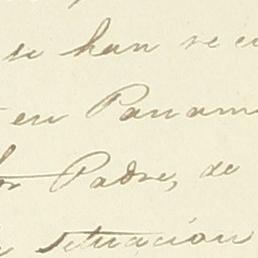 se han reci
en Panam
Padre, de
situacion